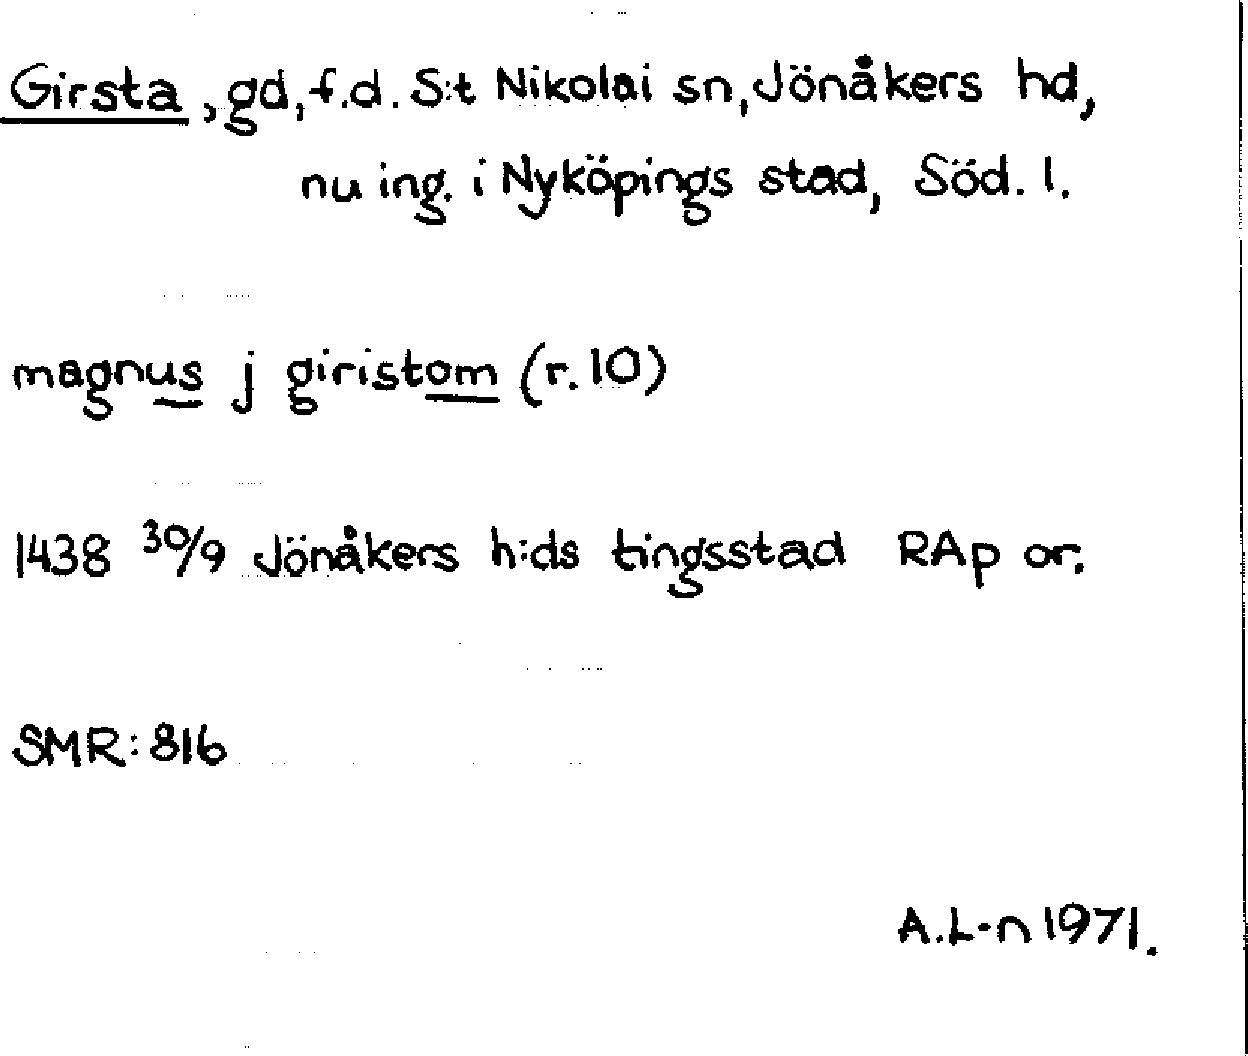 Girsta, gd, f.d. S:t Nikolai sn, Jönåkers hd,
nu ing. i Nyköpings stad, Söd. l.
magnus j giristom (r. 10)
1438 30/9 Jönåkers h:ds tingsstad RAp or.
SMR: 816
A.L-n 1971.